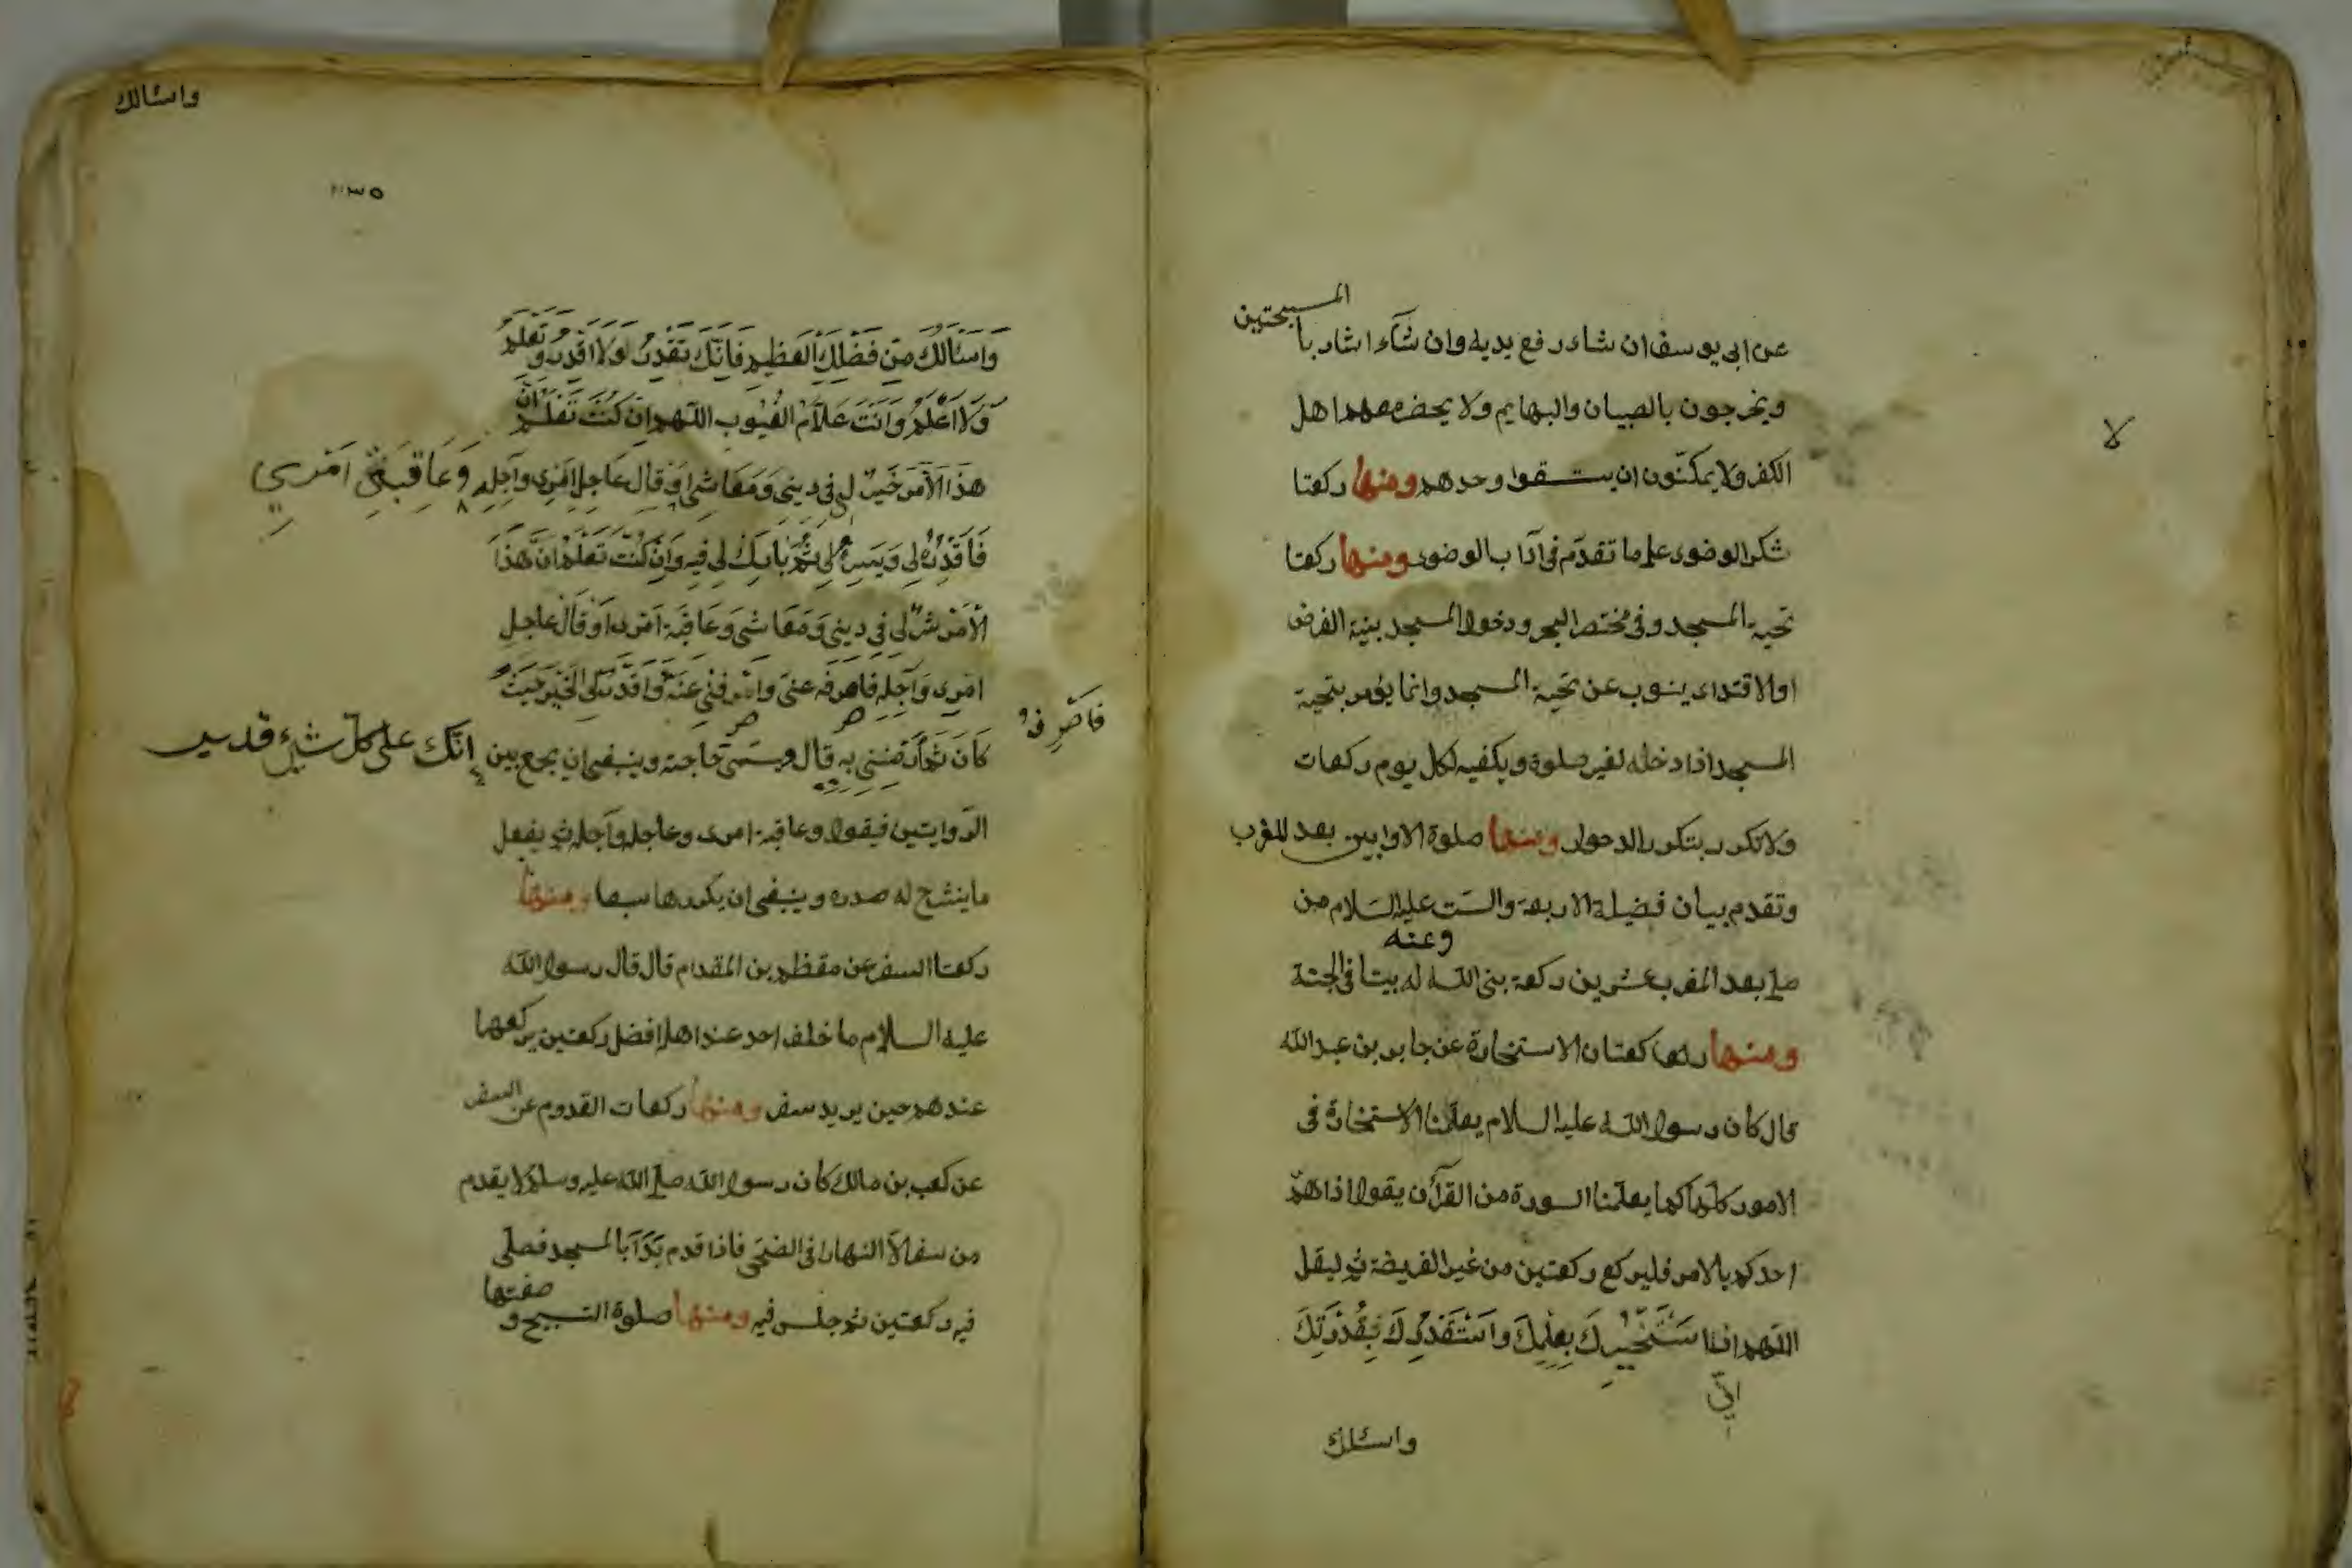 المسبحتين
عن ابى يوسف ان شاء رفع يديه وان شآء اشار با
ويخرجون بالصبيان والبهايم ولا يحضر معهم اهل
الكفر ولا يمكنّون ان يستقوا وحدهم ومنها ركعتا
شكر الوضوء على ما تقدّم فى آداب الوضوء ومنها ركعتا
تحية المسجد وفى مختصر البحر ودخول المسجد بنية الفرض
او الاقتداء ينوب عن تحية المسجد وانما يؤمر بتحية
المسجد اذا دخله لغير صلوة ويكفيه لكل يوم ركعات
ولا تكرر بتكرر الدخول ومنها صلوة الاوابين بعد المغرب
وتقدم بيان فضيلة الاربعة والست عليه السلام من
وعنه
صلى بعد المغرب عشرين ركعة بنى الله له بيتا فى الجنة
ومنها ركعتان الاستخارة عن جابر بن عبد الله
قال كان رسول الله عليه السلام يعلّمنا الاستخارة فى
الامور كلّها كما يعلّمنا السورة من القرآن يقول اذا همّ
احدكم بالامر فليركع ركعتين من غير الفريضة ثم ليقل
اللّهم انا استَخيرك بعِلمِكَ واستَقدِرُكَ بِقُدْرَتِكَ
انّي
واسئلك
لا
واسئالك
٣٥
وَاسئَالُكَ مِن فَضْلِكَ العَظِيمِ فَاِنّكَ تَقْدِرُ وَلا اَقدِرُ وَتَعْلَمُ
وَلَا اَعْلَمُ وَاَنْتَ عَلاَّمُ الغُيُوبِ اللّهم اِن كُنتَ تَعْلَمُ اَنَّ
هذَا الاَمرَ خَيرٌ لى فى دينى وَمَعَاشى اَوْ قال عَاجِلِ اَمْرِى وآجِلِهِ وَعَاقِبَةِ اَمْرِي
فَاقْدِرْهُ لِى وَيَسِّرْهُ لِى ثُمَّ بَارِكْ لِى فِيهِ وَاِنْ كُنْتَ تَعْلَمُ اَنَّ هَذَا
الاَمْرَ شَرٌّ لِى فى دِينى وَمَعَاشى وَعَاقِبَةِ اَمْرِى اَوْ قَالَ عاجِلِ
اَمْرِى وَآجِلِهِ فَاصْرِفْهُ عَنّى وَاصْرِفْنِى عَنْهُ وَاقْدُرْ لِىَ الْخَيْرَ حَيْثُ
فاصْرِفْهُ
كَانَ ثُمَّ اَرْضِنِى بِهِ قال ويسَمّى حَاجته وينبغى ان يجمع بين اِنّكَ على كل شيء قدير
الروايتين فيقول وعاقبة امرى وعاجله وآجله ثم يفعل
ما ينشرح له صدره وينبغى ان يكررها سبعا ومنها
ركعتا السفر عن مقطم بن المقدام قال قال رسول الله
عليه السلام ما خلف احد عند اهله افضل ركعتين يركعها
عندهم حين يريد سفر ومنها ركعات القدوم عن السفر
عن كعب بن مالك كان رسول الله صلى الله عليه وسلم لا يقدم
من سفر الا النهار فى الضحى فاذا قدم بَدَاَ بالمسجد فصلى
فيه ركعتين ثم جلس فيه ومنها صلوة التسبيح و
صفتها